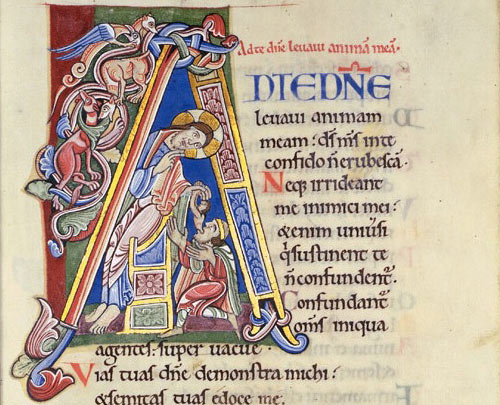 Ad te dn̄e levavi animā meā·
AD TE DN̄E
levavi animam
meam: ds̄ m̄s in te
confido n̄ erubescā.
Neq; irrideant
me inimici mei:
&enim univsi
q̄ sustinent te
n̄ confundent᷑.
Confundant᷑
om̄s iniqua
agentes: super vacue·
Vias tuas dn̄e demonstra michi:
&semitas tuas edoce me·